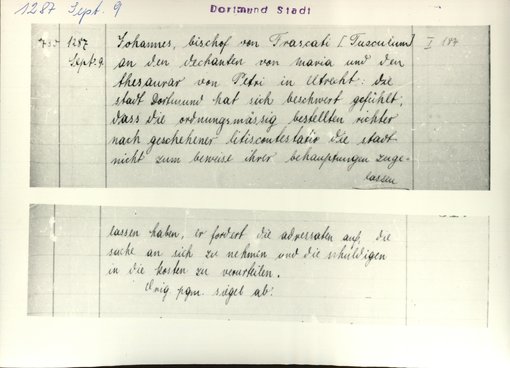 1287 Sept. 9
Dortmund Stadt
1287
Sept. 9.
I 187
Johannes, bischof von Frascati [Tusculum]
an den dechanten von maria und den
thesaurar von Petri in Utraht: die
stadt Dortmund hat sich beschwert gefühlt,
dass die ordnungsmässig bestellten richter
nach geschehener litiscontestatio die stadt
nicht zum beweise ihrer behauptungen zuge-
lassen
lassen haben, er fordert die adressaten auf, die
sache an sich zu nehmen und die schuldigen
in die kosten zu verurteilen.
Orig. pgm. siegel ab.